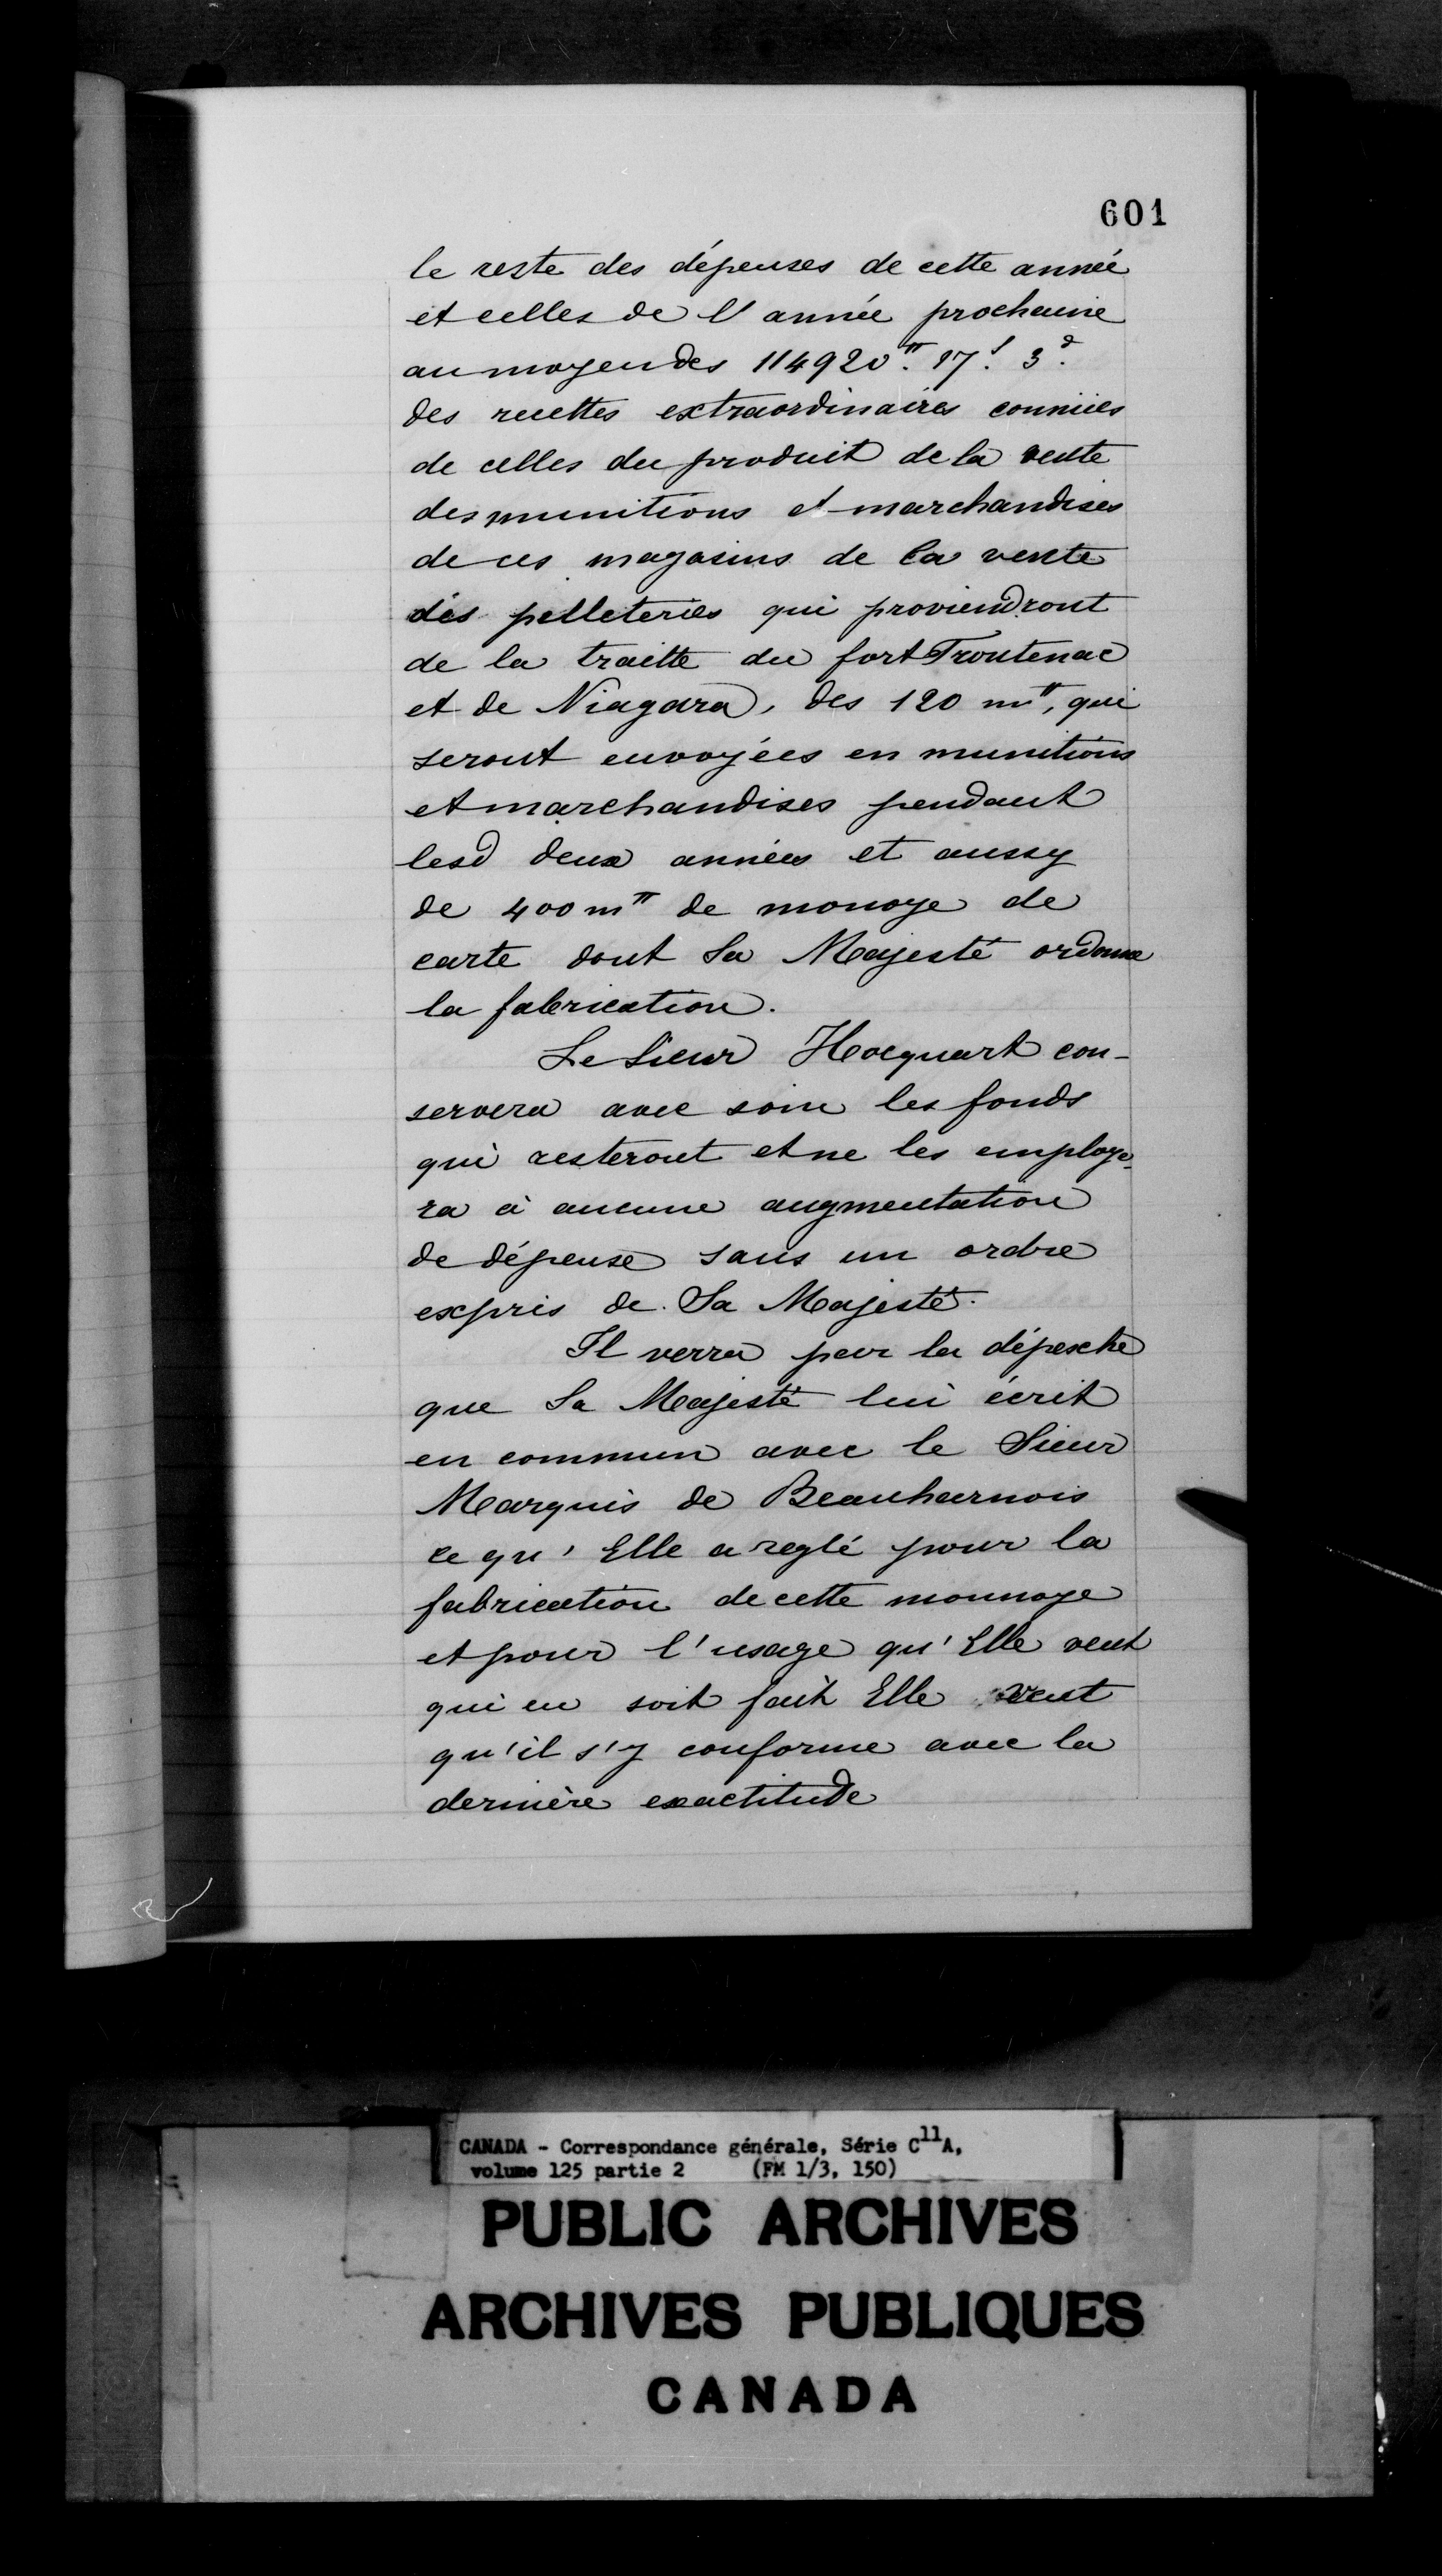 601
le reste des dépenses de cette année
et celles de l'année prochaine
au moyen des 114920ᵗᵗ. 17ˢ. 3ᵈ.
des recettes extraordinaires connües
de celles du produit de la vente
des munitions et marchandises
de ces magasins de la vente
des pelleteries qui proviendront
de la traitte du fort Frontenac
et de Niagara, des 120 mᵗᵗ, qui
seront envoyées en munitions
et marchandises pendant
lesd deux années et aussy
de 400 mᵗᵗ de monoye de
carte dont Sa Majesté ordonne
la fabrication.
Le Sieur Hocquart con-
servera avec soin les fonds
qui resteront et ne les employe-
ra à aucune augmentation
de dépense sans un ordre
exprès de Sa Majesté.
Il verra par la dépesche
que Sa Majesté lui écrit
en commun avec le Sieur
Marquis de Beauharnois
ce qu'Elle a reglé pour la
fabrication de cette monnoye
et pour l'usage qu'Elle veut
qui en soit fait Elle veut
qu'il s'y conforme avec la
dernière exactitude
CANADA - Correspondance générale, Série C¹¹A,
volume 125 partie 2 (FM 1/3, 150)
PUBLIC ARCHIVES
ARCHIVES PUBLIQUES
CANADA